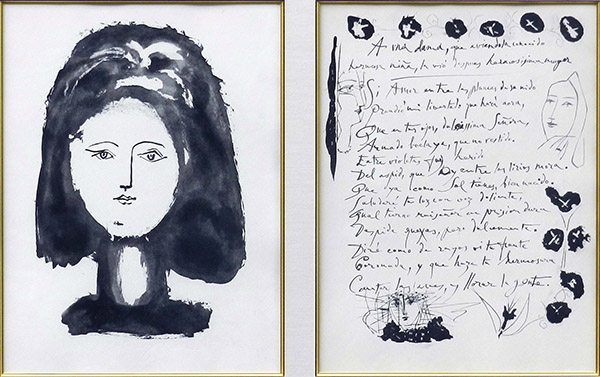 A una dama, que aviendola conocido
hermosa niña, la vió despues hermosissima muger
Si Amor entre las plumas de su nido
Prendió mi libertad que hará aora,
Que en tus ojos, dulcissima Señora,
Armado buela, ya que no vestido.
Entre violetas fui herido
Del aspid, que oy entre los lirios mora.
Que ya como Sol tienes, bien nacido.
Saludaré tu luz con voz doliente,
Qual tierno ruiseñor en prision dura
Despide quexas, pero dulcemente.
Diré como de rayos vi tu frente
Coronada, y que haze tu hermosura
Cantar las aves, y llorar la gente.